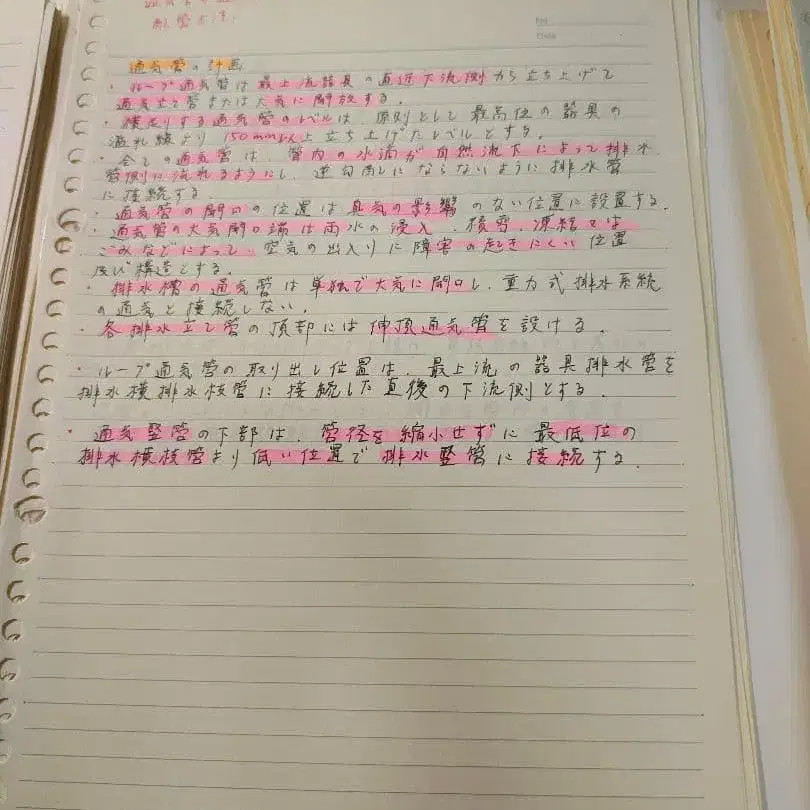 通気管の計画
・ループ通気管は最上流器具の直近下流側から立ち上げて
通気立て管または大気に開放する。
・横走りする通気管のレベルは、原則として最高位の器具の
溢れ縁より150mm以上立ち上げたレベルとする。
・全ての通気管は、管内の水滴が自然流下によって排水
管側に流れるようにし、逆勾配にならないように排水管
に接続する
・通気管の開口の位置は臭気の影響のない位置に設置する。
・通気管の大気開口端は雨水の浸入、積雪、凍結又は
ごみなどによって、空気の出入りに障害の起きにくい位置
及び構造とする。
・排水槽の通気管は単独で大気に開口し、重力式排水系統
の通気と接続しない。
・各排水立て管の頂部には伸頂通気管を設ける。
・ループ通気管の取り出し位置は、最上流の器具排水管を
排水横排水枝管に接続した直後の下流側とする。
・通気竪管の下部は、管径を縮小せずに最低位の
排水横枝管より低い位置で排水竪管に接続する。